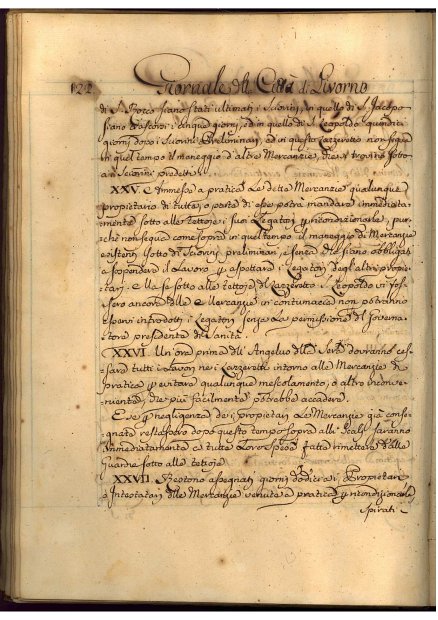 122 Giornale della Città di Livorno
di S. Rocco siano stati ultimati i Sciorini, in quello di S. Jacopo
siano trascorsi cinque giorni, ed in quello di S. Leopoldo quindici
giorni dopo i Sciorini Preliminari, ed in questo Lazzeretto non segua
in quel tempo il maneggio d'altre Mercanzie, che si trovino sotto
a' Sciorini predetti.
XXV. Ammesse a pratica le dette Mercanzie qualunque
propietario di tutta, o parte di esse potrà mandare immediata-
mente sotto alle tettoje i suoi Legatori per ricondizionarle, pur-
chè non segua come sopra in quel tempo il maneggio di Mercanzie
esistenti sotto di Sciorini preliminari, e senza che siano obbligati
a sospendere il Lavoro per aspettare i Legatori degli altri propie-
tari. E se sotto alle tettoje del Lazzeretto S. Leopoldo vi fos-
sero ancora delle Mercanzie in contumacia non potranno
esservi introdotti i Legatori senza la permissione del Governa-
tore presidente di Sanità.
XXVI. Un'ora prima dell'Angelus della Sera dovranno ces-
sare tutti i Lavori nei Lazzeretti intorno alle Mercanzie di
pratica per evitare qualunque mescolamento, o altro inconve-
niente, che più facilmente potrebbe accadere.
E se per negligenza dei propietari le Mercanzie già conse-
gnate restassero dopo questo tempo sopra alli Scali saranno
immediatamente e tutte Loro spese fatte rimettere dalle
Guardie sotto alle tettoje.
XXVII. Restono assegnati giorni dodici a i Propietari
o Intestatari delle Mercanzie venute a pratica per ricondizionarle,
spirati